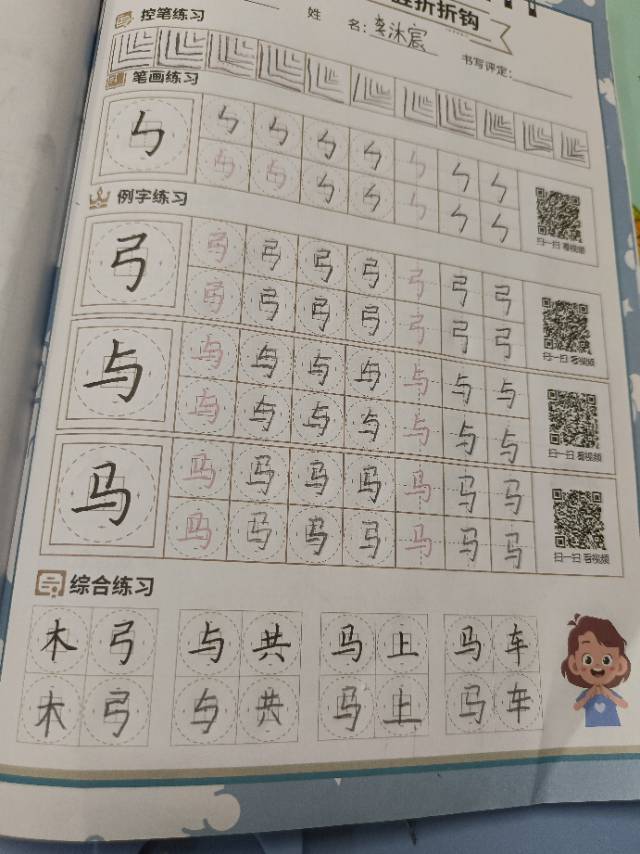 折折钩
控笔练习
姓 名：李沐宸
书写评定：
笔画练习
㇉ ㇉ ㇉ ㇉ ㇉ ㇉ ㇉ ㇉
㇉ ㇉ ㇉ ㇉ ㇉ ㇉ ㇉
扫一扫 看视频
例字练习
弓 弓 弓 弓 弓 弓 弓 弓
弓 弓 弓 弓 弓 弓 弓
扫一扫 看视频
与 与 与 与 与 与 与 与
与 与 与 与 与 与 与
扫一扫 看视频
马 马 马 马 马 马 马 马
马 马 马 马 马 马 马
扫一扫 看视频
综合练习
木 弓 与 共 马 上 马 车
木 弓 与 共 马 上 马 车